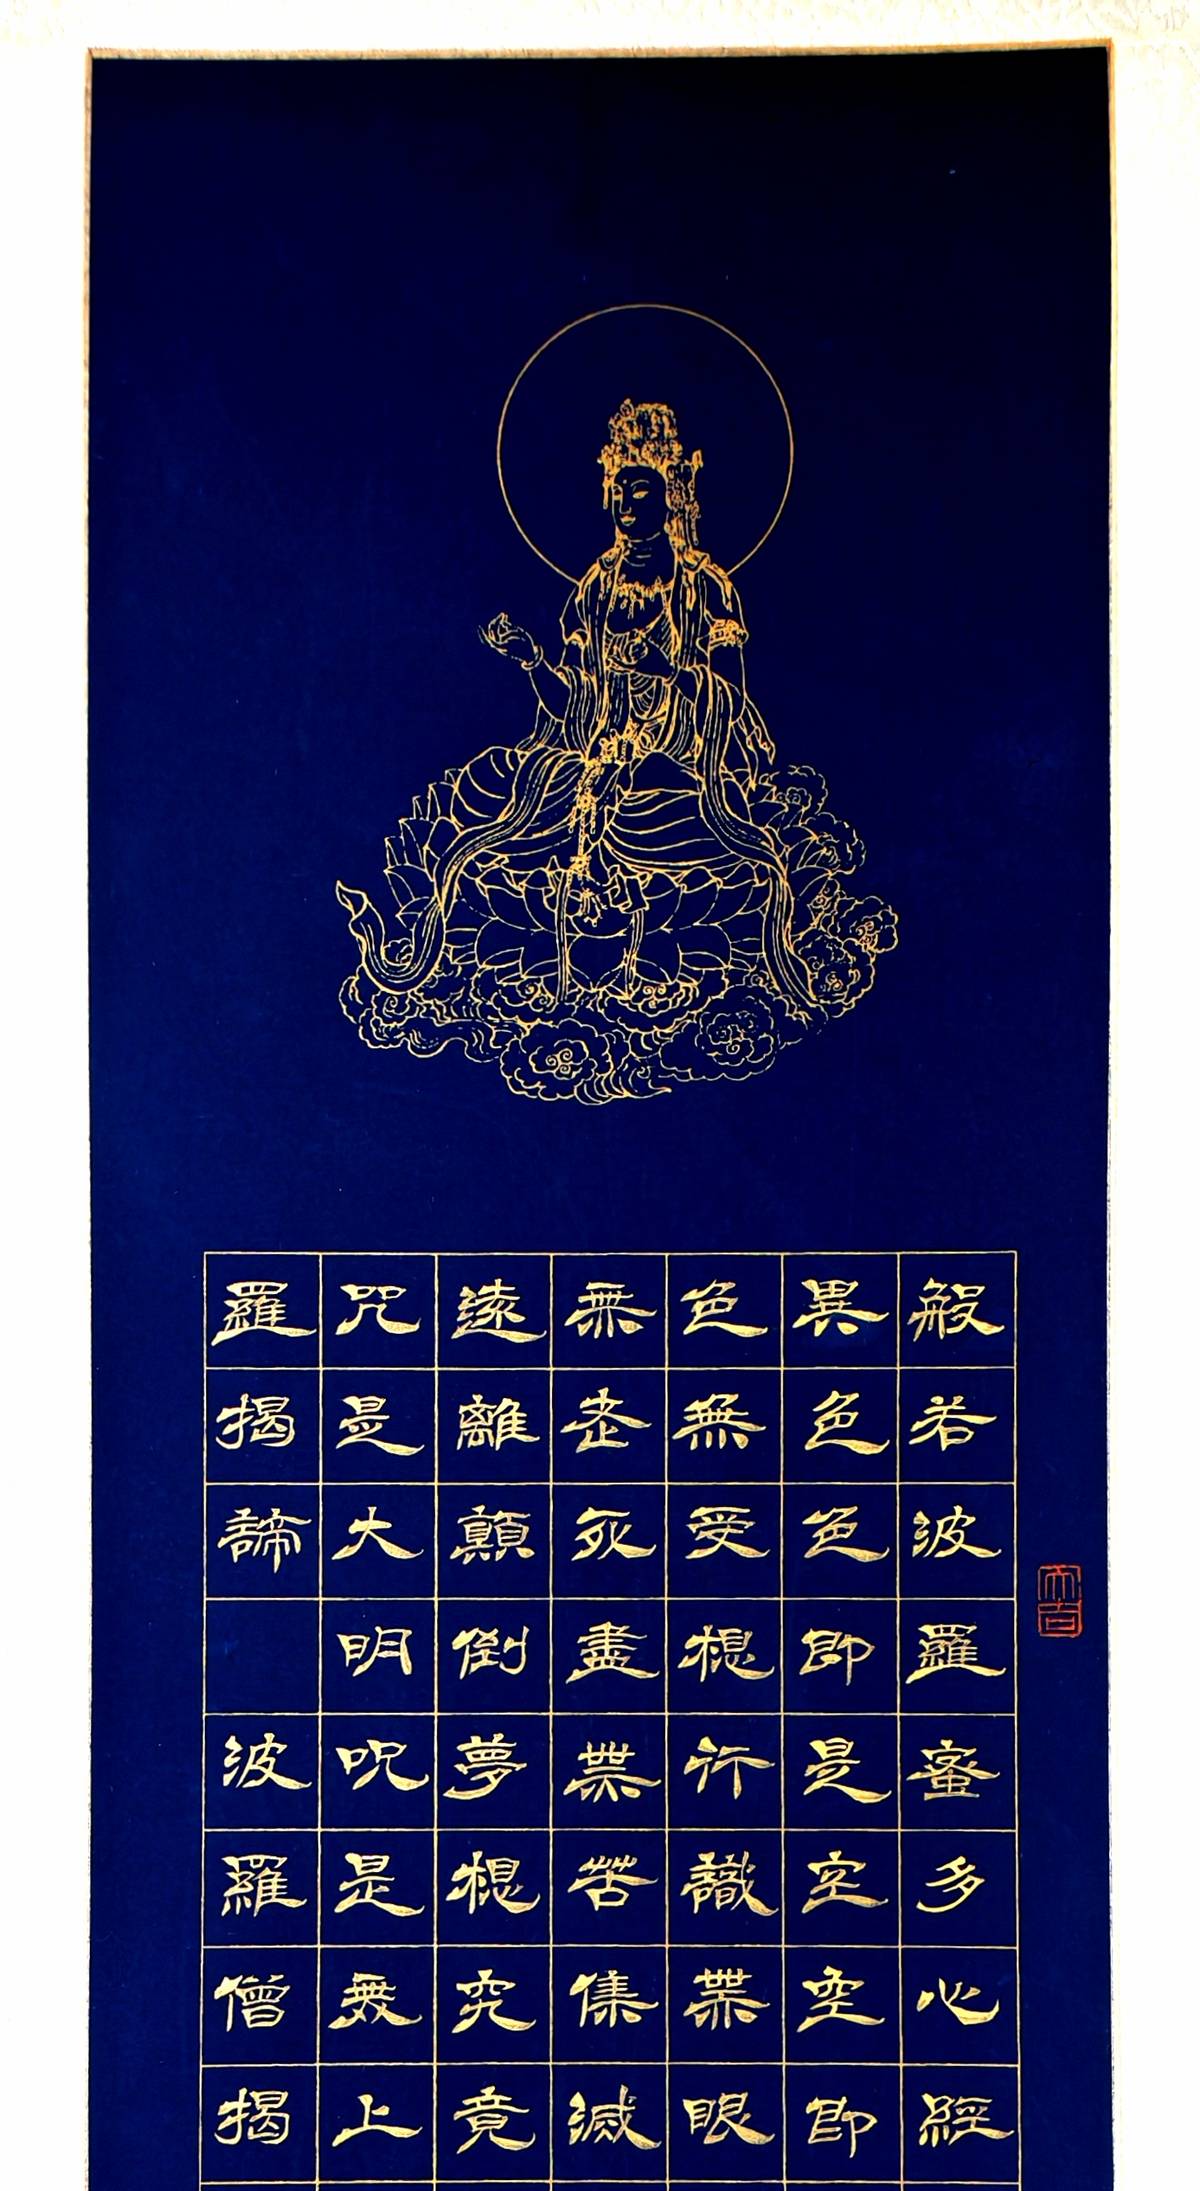 般若波羅蜜多心經
異色色即是空空即
色無受想行識無眼
無老死盡無苦集滅
遠離顛倒夢想究竟
咒是大明呪是無上
羅揭諦 波羅僧揭